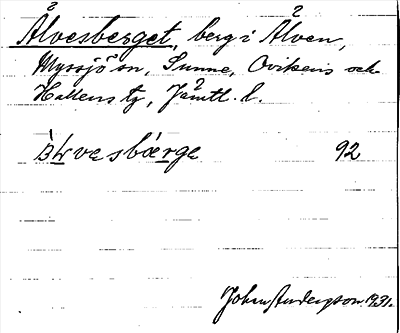 Ålvesberget, berg i Ålven,
Myssjö sn, Sunne, Ovikens och
Hallens tg, Jämtl. l.
92
John Anderson 1931.